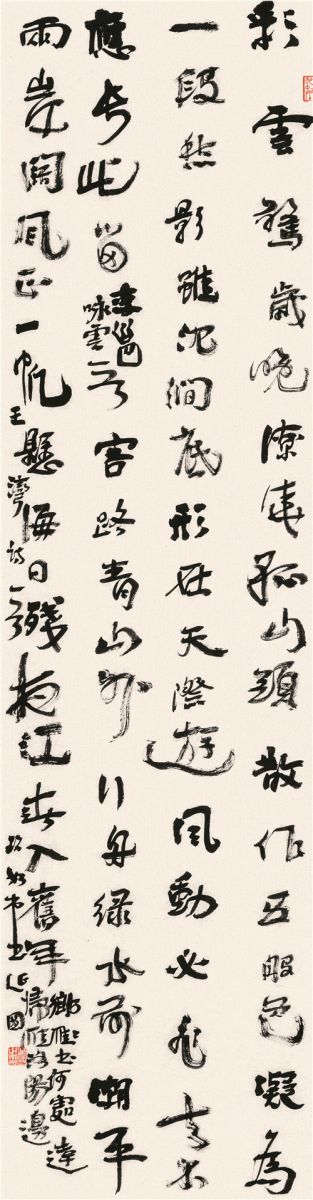 彩雲驚歲晚繚繞孤山頭散作五般色凝為
一段愁影雖沈澗底形在天際遊風動必飛去不
應長此留李邕咏雲客路青山外行舟綠水前潮平
兩岸闊風正一帆懸海日生殘夜江春入舊年鄉書何處達歸雁洛陽邊
王灣詩
延國